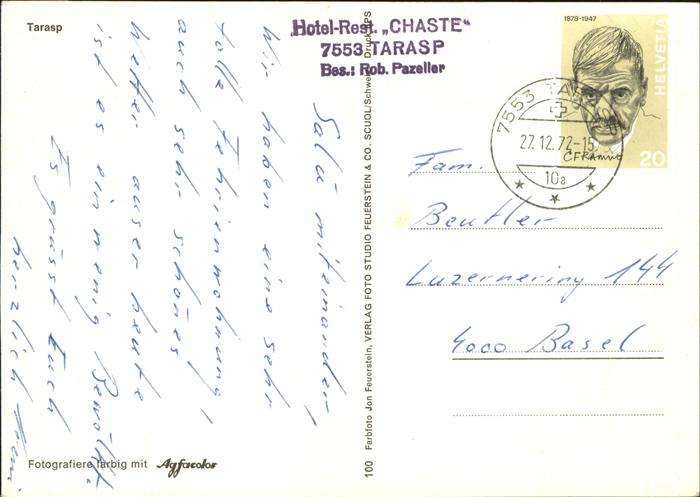 Tarasp
Hotel-Rest. „CHASTE“
7553 TARASP
Bes.: Rob. Pazeller
1878-1947
HELVETIA
20
7553 TARASP
27.12.72-15
10a
C F Ramuz
Salü miteinander,
Wir haben eine sehr
tolle Ferienwohnung,
auch sehr schönes
Wetter ausser heute
ist es ein wenig Bewölkt.
Es grüsst Euch
herzlich
Fam.
Beutler
Luzernerring 144
4000 Basel
100 Farbfoto Jon Feuerstein, VERLAG FOTO STUDIO FEUERSTEIN & CO. SCUOL/Schweiz Druck: SPS
Fotografiere farbig mit Agfacolor